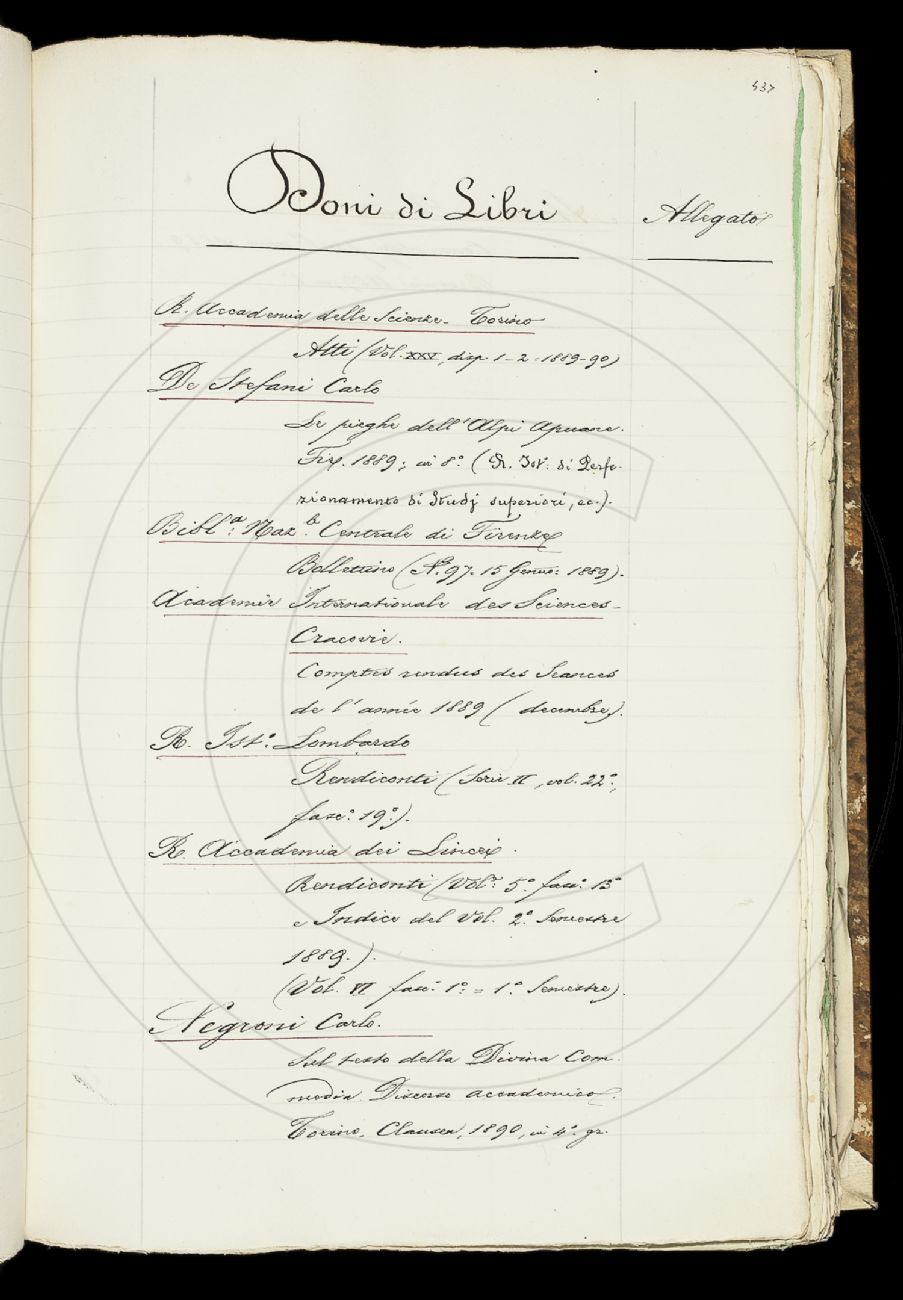 437
Doni di Libri
Allegato
R. Accademia delle Scienze - Torino
Atti (Vol. XXV, disp. 1-2 - 1889-90)
De Stefani Carlo
Le pieghe dell'Alpi Apuane.
Fir. 1889; in 8.° (R. Ist.° di Perfe-
zionamento di Studj superiori, ec.).
Bibl.a Naz.le Centrale di Firenze
Bollettino (N.° 97. 15 Genn.° 1889).
Academie Internationale des Sciences -
Cracovie.
Comptes rendus des Seances
de l'année 1889 (decembre).
R. Ist.° Lombardo
Rendiconti (Serie II, vol. 22°,
fasc.° 19°.).
R. Accademia dei Lincei.
Rendiconti (Vol.e 5.° fasc.° 13°
e Indice del Vol. 2.° Semestre
1889.).
(Vol. VI fasc.° 1°. = 1.° Semestre).
Negroni Carlo.
Sul testo della Divina Com-
media. Discorso accademico.
Torino, Clausen, 1890, in 4.° gr.